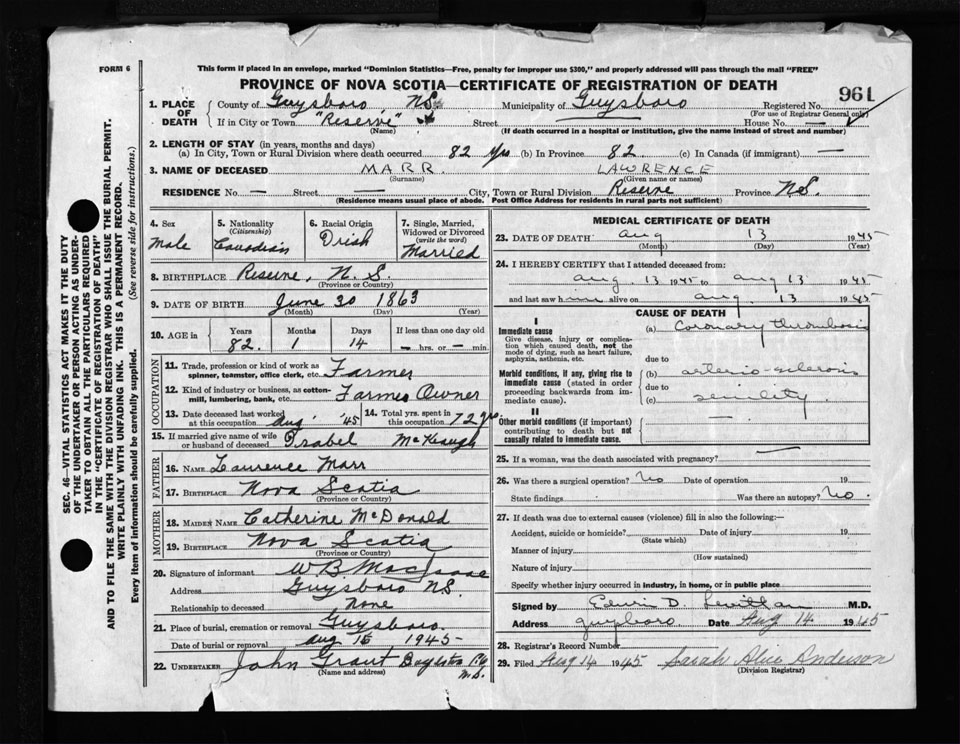 FORM 6
This form if placed in an envelope, marked "Dominion Statistics—Free, penalty for improper use $300," and properly addressed will pass through the mail "FREE"
PROVINCE OF NOVA SCOTIA—CERTIFICATE OF REGISTRATION OF DEATH
961
1. PLACE OF DEATH County of Guysboro, N.S. Municipality of Guysboro Registered No.
(For use of Registrar General only)
If in City or Town "Reserve" Street House No. —
(Name) (If death occurred in a hospital or institution, give the name instead of street and number)
2. LENGTH OF STAY (in years, months and days)
(a) In City, Town or Rural Division where death occurred 82 yrs (b) In Province 82 (c) In Canada (if immigrant) —
3. NAME OF DECEASED MARR LAWRENCE
(Surname) (Given name or names)
RESIDENCE No. — Street — City, Town or Rural Division Reserve Province N.S.
(Residence means usual place of abode. Post Office Address for residents in rural parts not sufficient)
4. Sex
Male
5. Nationality
(Citizenship)
Canadian
6. Racial Origin
Irish
7. Single, Married, Widowed or Divorced
(write the word)
Married
8. BIRTHPLACE Reserve, N.S.
(Province or Country)
9. DATE OF BIRTH June 30 1863
(Month) (Day) (Year)
10. AGE in Years Months Days If less than one day old
82 1 14 — hrs. or — min.
OCCUPATION
11. Trade, profession or kind of work as spinner, teamster, office clerk, etc. Farmer
12. Kind of industry or business, as cotton-mill, lumbering, bank, etc. Farmer Owner
13. Date deceased last worked at this occupation Aug '45 14. Total yrs. spent in this occupation 72 yrs.
15. If married give name of wife or husband of deceased Isabel McKeough
FATHER
16. NAME Laurence Marr
17. BIRTHPLACE Nova Scotia
(Province or Country)
MOTHER
18. MAIDEN NAME Catherine McDonald
19. BIRTHPLACE Nova Scotia
(Province or Country)
20. Signature of informant W B MacIsaac
Address Guysboro N.S.
Relationship to deceased None
21. Place of burial, cremation or removal Guysboro.
Date of burial or removal Aug 15 1945
22. UNDERTAKER John Grant N.S.
(Name and address)
MEDICAL CERTIFICATE OF DEATH
23. DATE OF DEATH Aug 13 1945
(Month) (Day) (Year)
24. I HEREBY CERTIFY that I attended deceased from:
Aug. 13 1945 to Aug 13 1945
and last saw him alive on Aug. 13 1945
CAUSE OF DEATH
I
Immediate cause
Give disease, injury or complication which caused death, not the mode of dying, such as heart failure, asphyxia, asthenia, etc.
(a) Coronary thrombosis
due to
Morbid conditions, if any, giving rise to immediate cause (stated in order proceeding backwards from immediate cause).
(b) arterio-sclerosis
due to
(c) senility
II
Other morbid conditions (if important) contributing to death but not causally related to immediate cause.
25. If a woman, was the death associated with pregnancy?
26. Was there a surgical operation? No Date of operation 19
State findings Was there an autopsy? No.
27. If death was due to external causes (violence) fill in also the following:—
Accident, suicide or homicide? Date of injury 19
(State which)
Manner of injury
(How sustained)
Nature of injury
Specify whether injury occurred in industry, in home, or in public place
Signed by Edwin D. M.D.
Address Guysboro Date Aug 14 1945
28. Registrar's Record Number
29. Filed Aug 14 1945 Sarah Alice Anderson
(Division Registrar)
SEC. 46—VITAL STATISTICS ACT MAKES IT THE DUTY
OF THE UNDERTAKER OR PERSON ACTING AS UNDER-
TAKER TO OBTAIN ALL THE PARTICULARS REQUIRED
IN THE "CERTIFICATE OF REGISTRATION OF DEATH"
AND TO FILE THE SAME WITH THE DIVISION REGISTRAR WHO SHALL ISSUE THE BURIAL PERMIT.
WRITE PLAINLY WITH UNFADING INK. THIS IS A PERMANENT RECORD.
Every item of information should be carefully supplied. (See reverse side for instructions.)